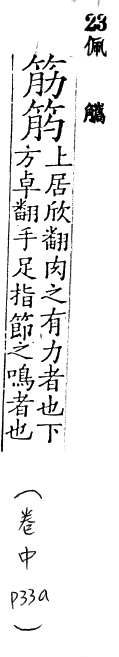 23佩觿
筋筋上居欣翻肉之有力者也下
方卓翻手足指節之鳴者也
(卷中 p33a)